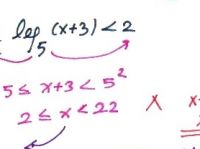 log₅ (x+3) < 2
5 ≤ x+3 < 5²
2 ≤ x < 22 X x